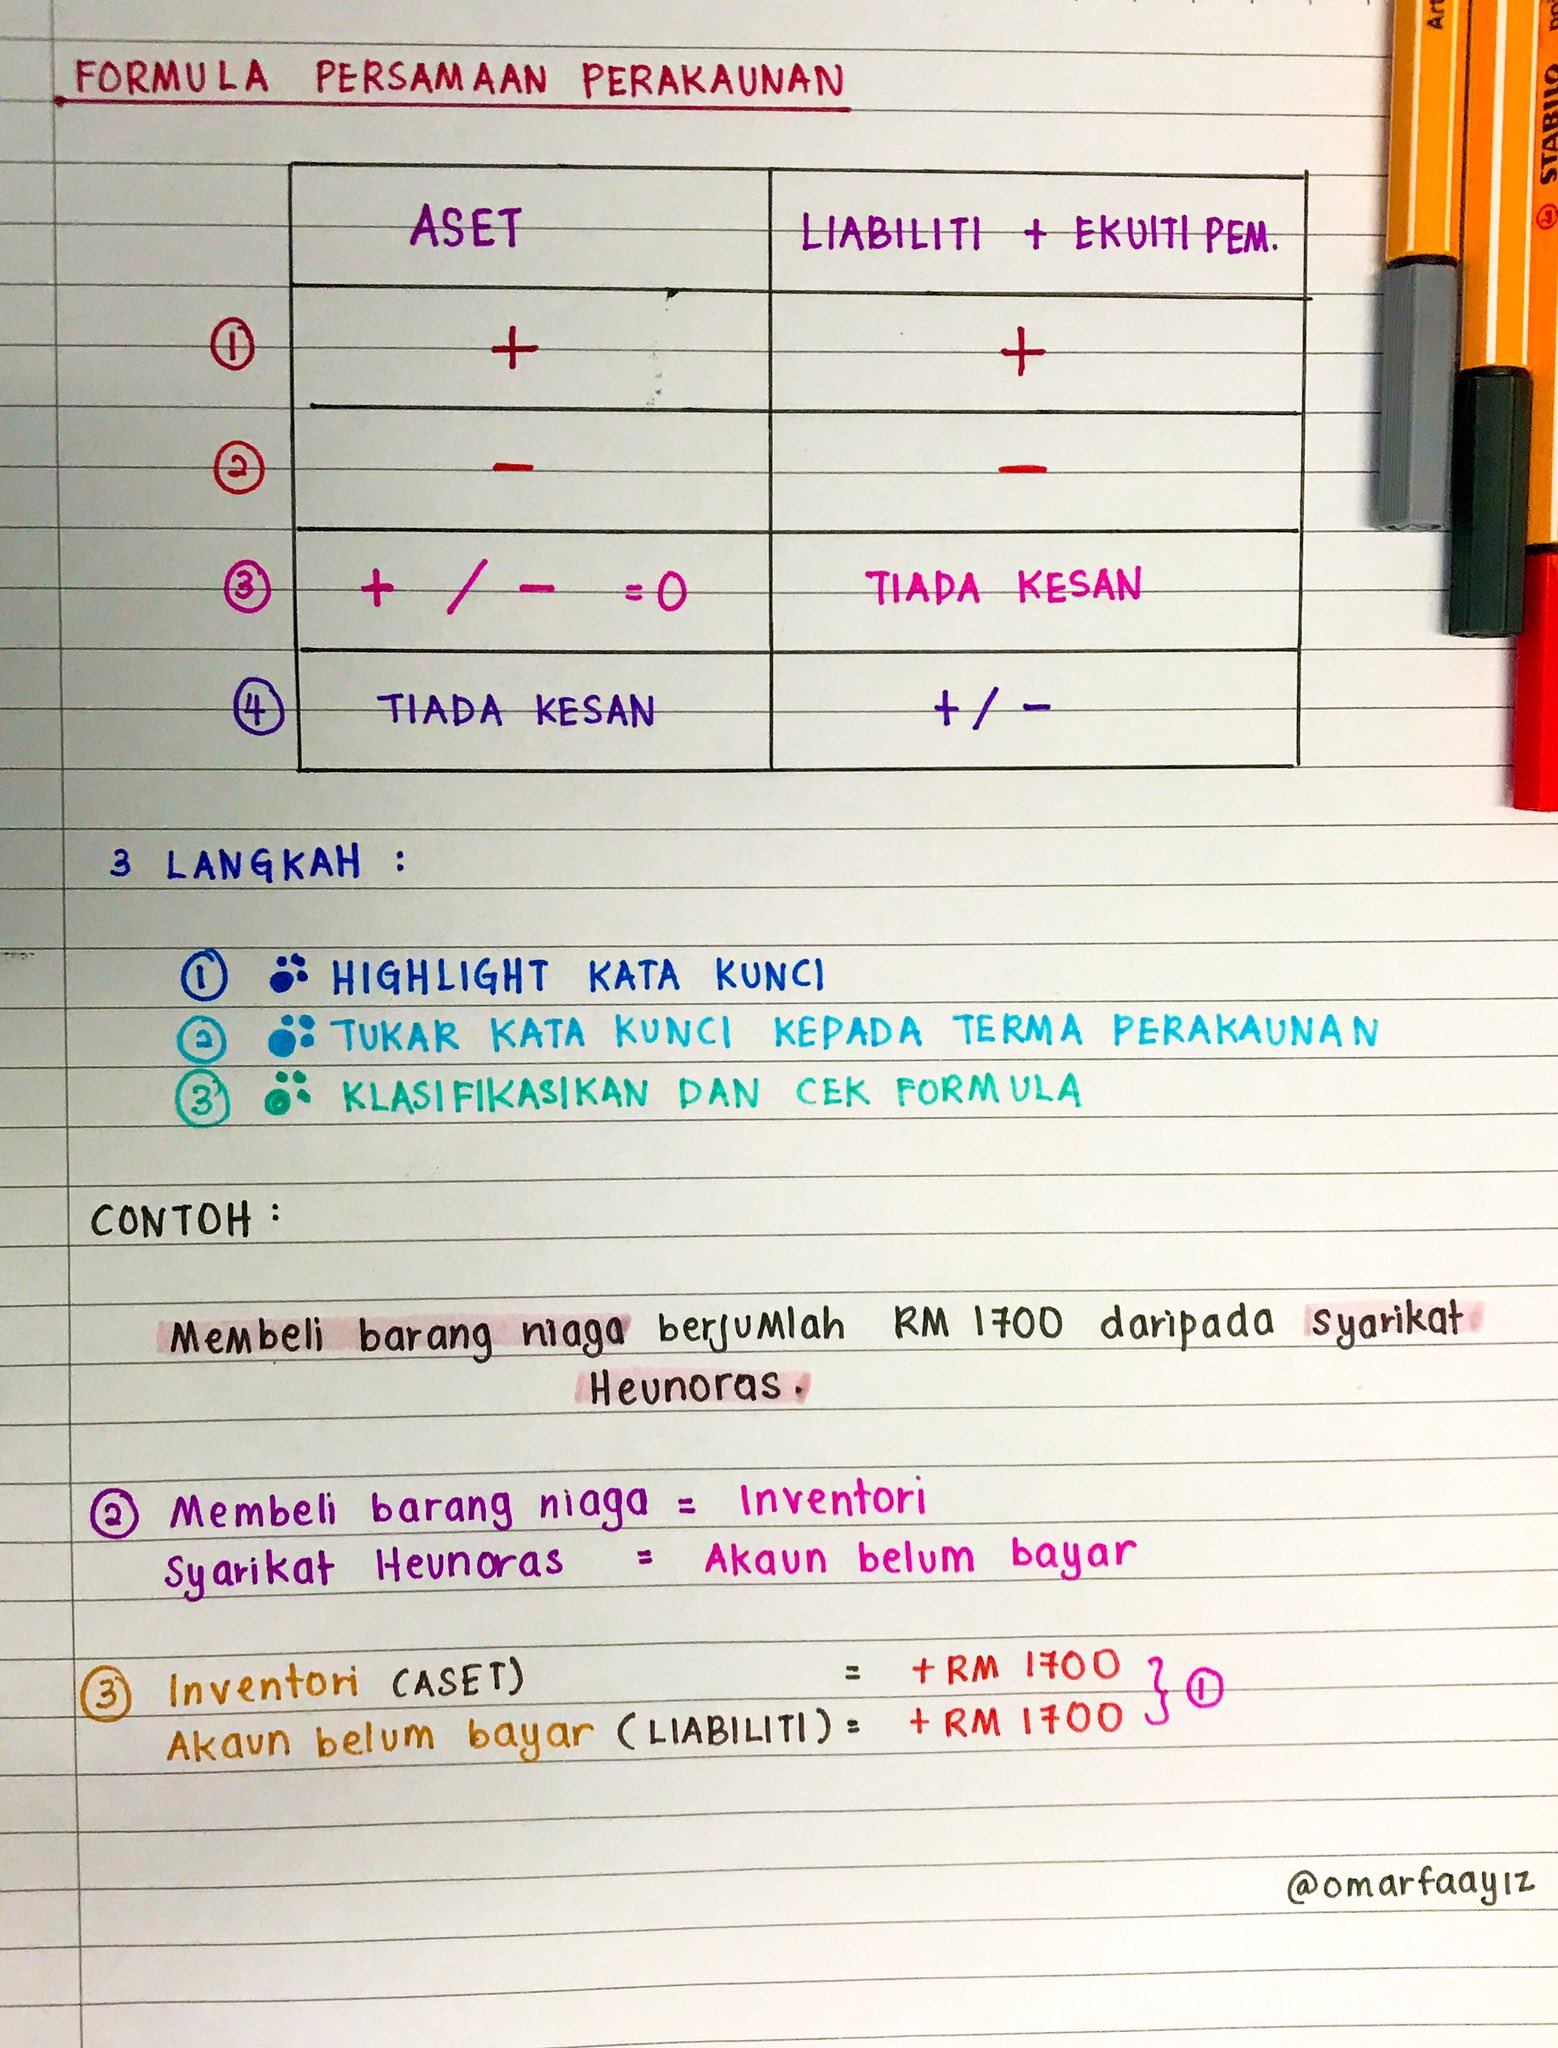 FORMULA PERSAMAAN PERAKAUNAN
ASET LIABILITI + EKUITI PEM.
① + +
② - -
③ + / - = 0 TIADA KESAN
④ TIADA KESAN + / -
3 LANGKAH :
① HIGHLIGHT KATA KUNCI
② TUKAR KATA KUNCI KEPADA TERMA PERAKAUNAN
③ KLASIFIKASIKAN DAN CEK FORMULA
CONTOH :
Membeli barang niaga berjumlah RM 1700 daripada syarikat
Heunoras.
② Membeli barang niaga = Inventori
Syarikat Heunoras = Akaun belum bayar
③ Inventori (ASET) = + RM 1700
Akaun belum bayar (LIABILITI) = + RM 1700 } ①
@omarfaayiz
STABILO